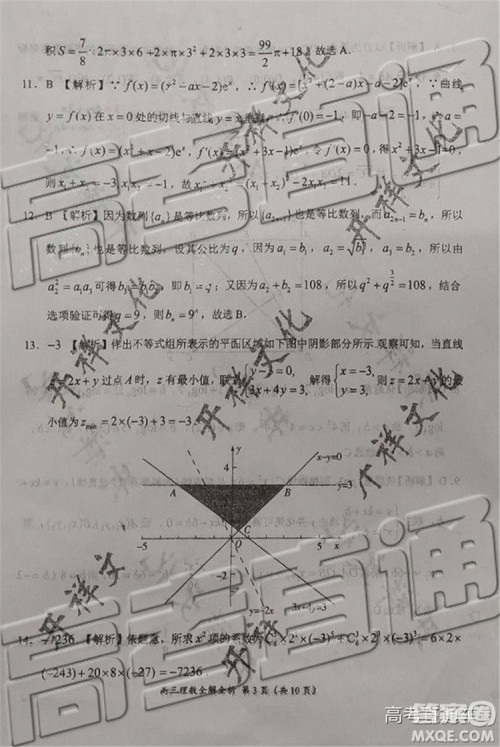 积S=7/8·2π×3×6+2×π×3²+2×3×3=99/2π+18，故选A.
11. B 【解析】∵f(x)=(x²-ax-2)eˣ，∴f'(x)=[x²+(2-a)x-a-2]eˣ，∵曲线
y=f(x)在x=0处的切线与直线 ∴f'(0)=-1，即-a-2=-1，∴a=
-1，∴f(x)=(x²+x-2)eˣ，f'(x)=(x²+3x-1)eˣ，令f'(x)=0，得x²+3x-1=0，
则x₁+x₂=-3, x₁x₂=-1，故x₁²+x₂²=(x₁+x₂)²-2x₁x₂=11.
12. B 【解析】因为数列{aₙ}是等比数列，所以{a₂ₙ₋₁}也是等比数列，而a₂ₙ₋₁=bₙ，所以
数列{bₙ}也是等比数列，设其公比为q，因为a₁=b₁，a₂=
a₂²=a₁a₃可得 又因为a₂+b₂=108，所以q²+q^(3/2)=108，结合
选项验证可得q=9，则bₙ=9ⁿ，故选B.
13. -3 【解析】作出不等式组所表示的平面区域如下图中阴影部分所示.观察可知，当直线
z=2x+y过点A时，z有最小值，联立{y-3=0, 3x+4y=3, 解得{x=-3, y=3, 则z=2x+y的最
小值为z_min=2×(-3)+3=-3.
y
4
x-y=0
A
B
y=3
2
C
-5
O
5
x
-2
y=-2x
3x+4y=3
14. -7236 【解析】依题意，所求x²项的系数为
(-243)+20×8×(-27)=-7236.
高三理数全解全析 第3页（共10页）
高考直通车
开祥文化
开祥文化
开祥文化
开祥文化
开祥文化
开祥文化
高考直通车
答案圈
MXQE.COM